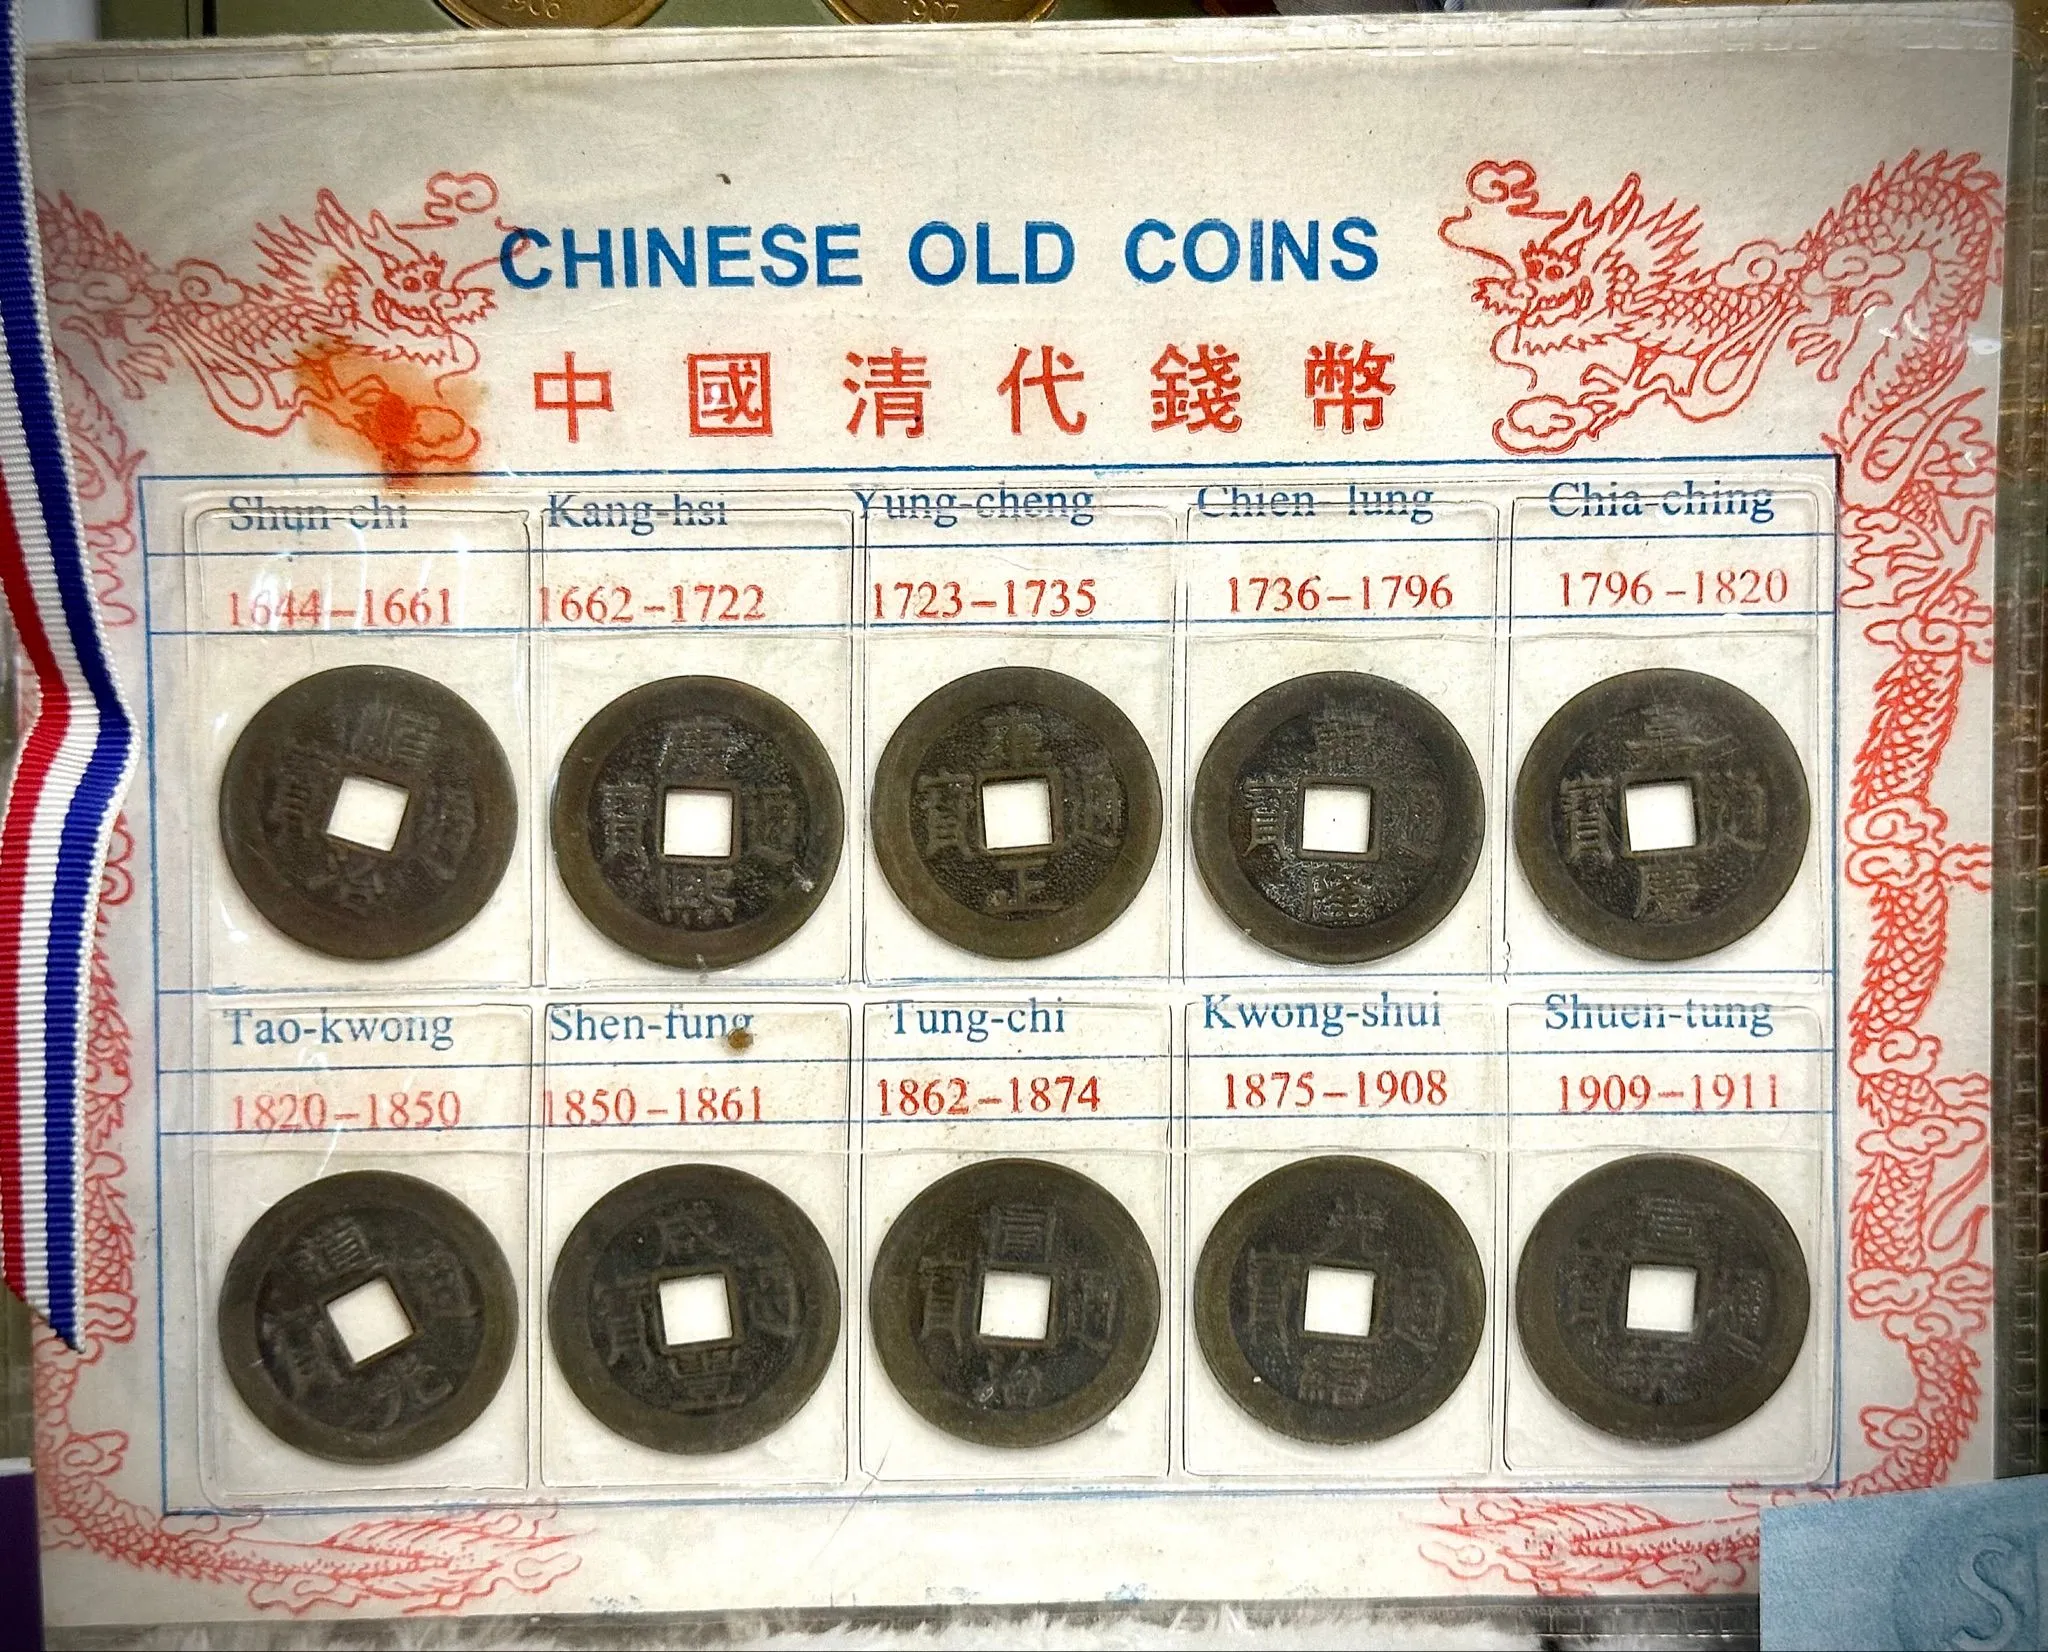 1906
1907
CHINESE OLD COINS
中國清代錢幣
Shun-chi Kang-hsi Yung-cheng Chien-lung Chia-ching
1644-1661 1662-1722 1723-1735 1736-1796 1796-1820
順治通寶 康熙通寶 雍正通寶 乾隆通寶 嘉慶通寶
Tao-kwong Shen-fung Tung-chi Kwong-shui Shuen-tung
1820-1850 1850-1861 1862-1874 1875-1908 1909-1911
道光通寶 咸豐通寶 同治通寶 光緒通寶 宣統通寶